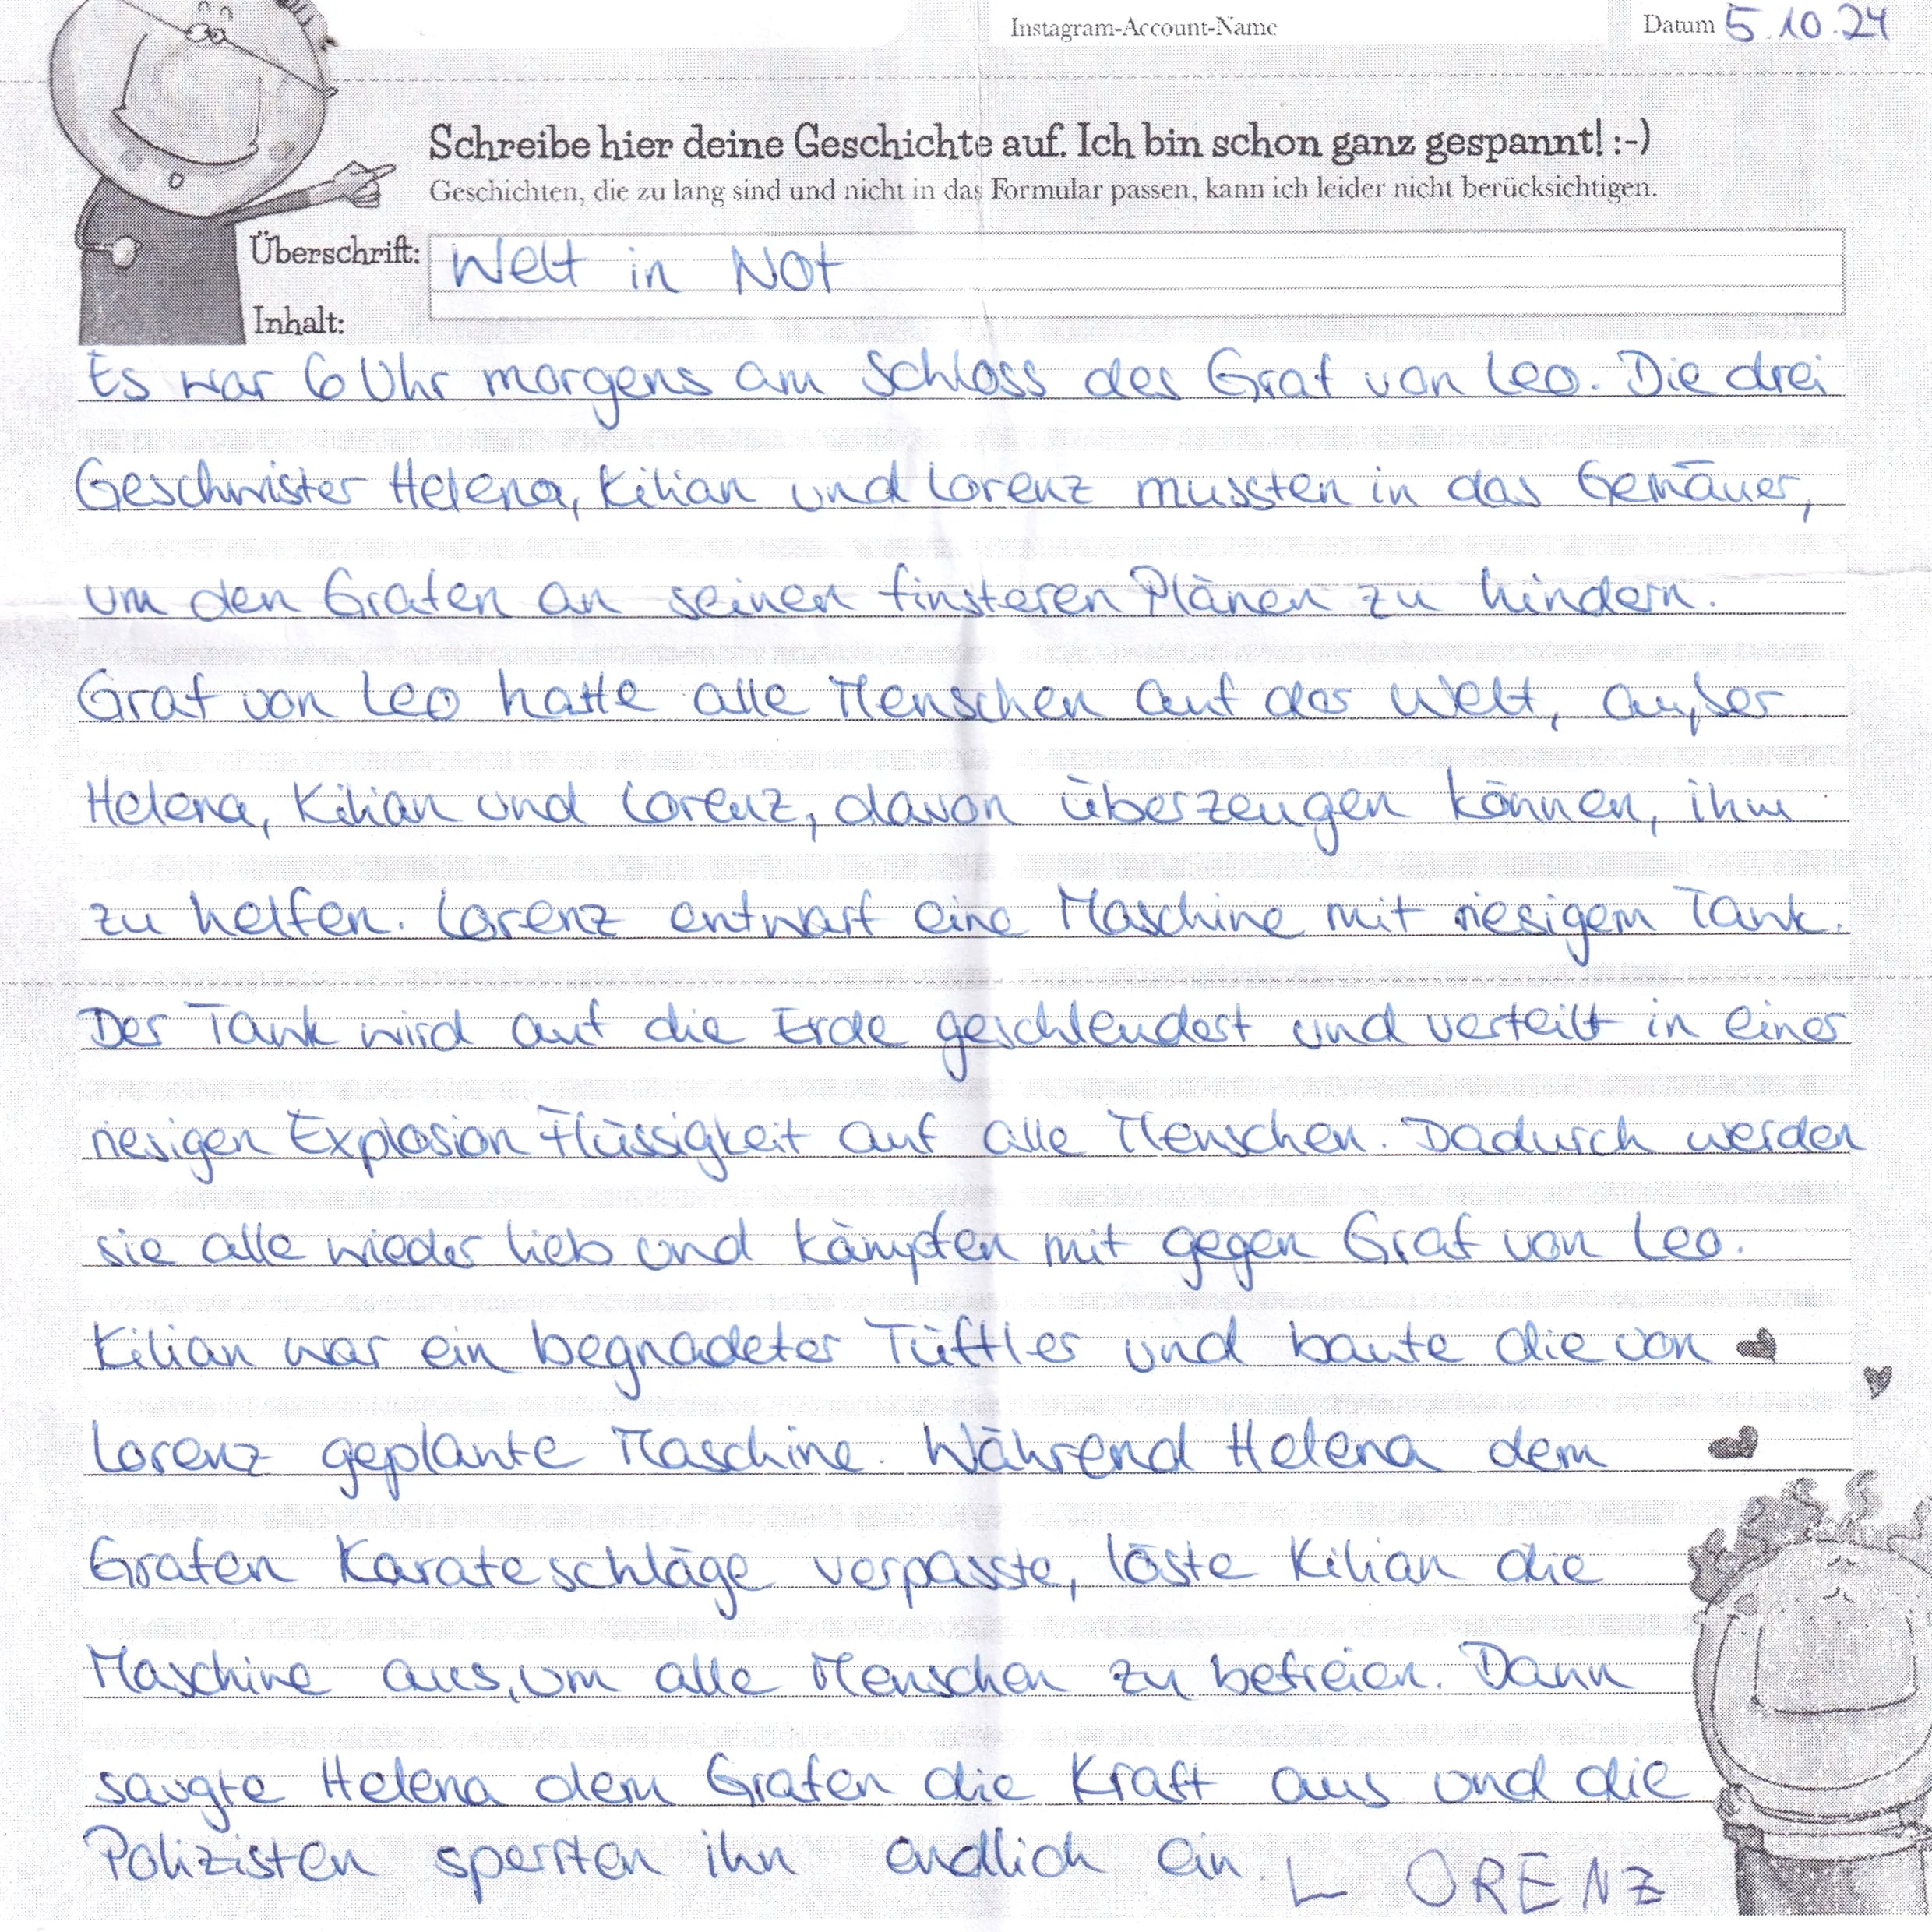 Instagram-Account-Name
Datum 5.10.24
Schreibe hier deine Geschichte auf. Ich bin schon ganz gespannt! :-)
Geschichten, die zu lang sind und nicht in das Formular passen, kann ich leider nicht berücksichtigen.
Überschrift: Welt in Not
Inhalt:
Es war 6 Uhr morgens am Schloss des Graf von Leo. Die drei
Geschwister Helena, Kilian und Lorenz mussten in das Gemäuer,
um den Grafen an seinen finsteren Plänen zu hindern.
Graf von Leo hatte alle Menschen auf der Welt, außer
Helena, Kilian und Lorenz, davon überzeugen können, ihm
zu helfen. Lorenz entwarf eine Maschine mit riesigem Tank.
Der Tank wird auf die Erde geschleudert und verteilt in einer
riesigen Explosion Flüssigkeit auf alle Menschen. Dadurch werden
sie alle wieder lieb und kämpfen mit gegen Graf von Leo.
Kilian war ein begnadeter Tüftler und baute die von
Lorenz geplante Maschine. Während Helena dem
Grafen Karateschläge verpasste, löste Kilian die
Maschine aus, um alle Menschen zu befreien. Dann
saugte Helena dem Grafen die Kraft aus und die
Polizisten sperrten ihn endlich ein. LORENZ